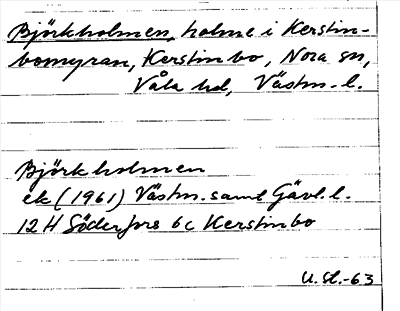 Björkholmen, holme i Kerstin-
bomyran, Kerstinbo, Nora sn,
Våla hd, Västm. l.
Björkholmen
ek (1961) Västm. samt Gävl. l.
12 H Söderfors 6c Kerstinbo
U. St. -63